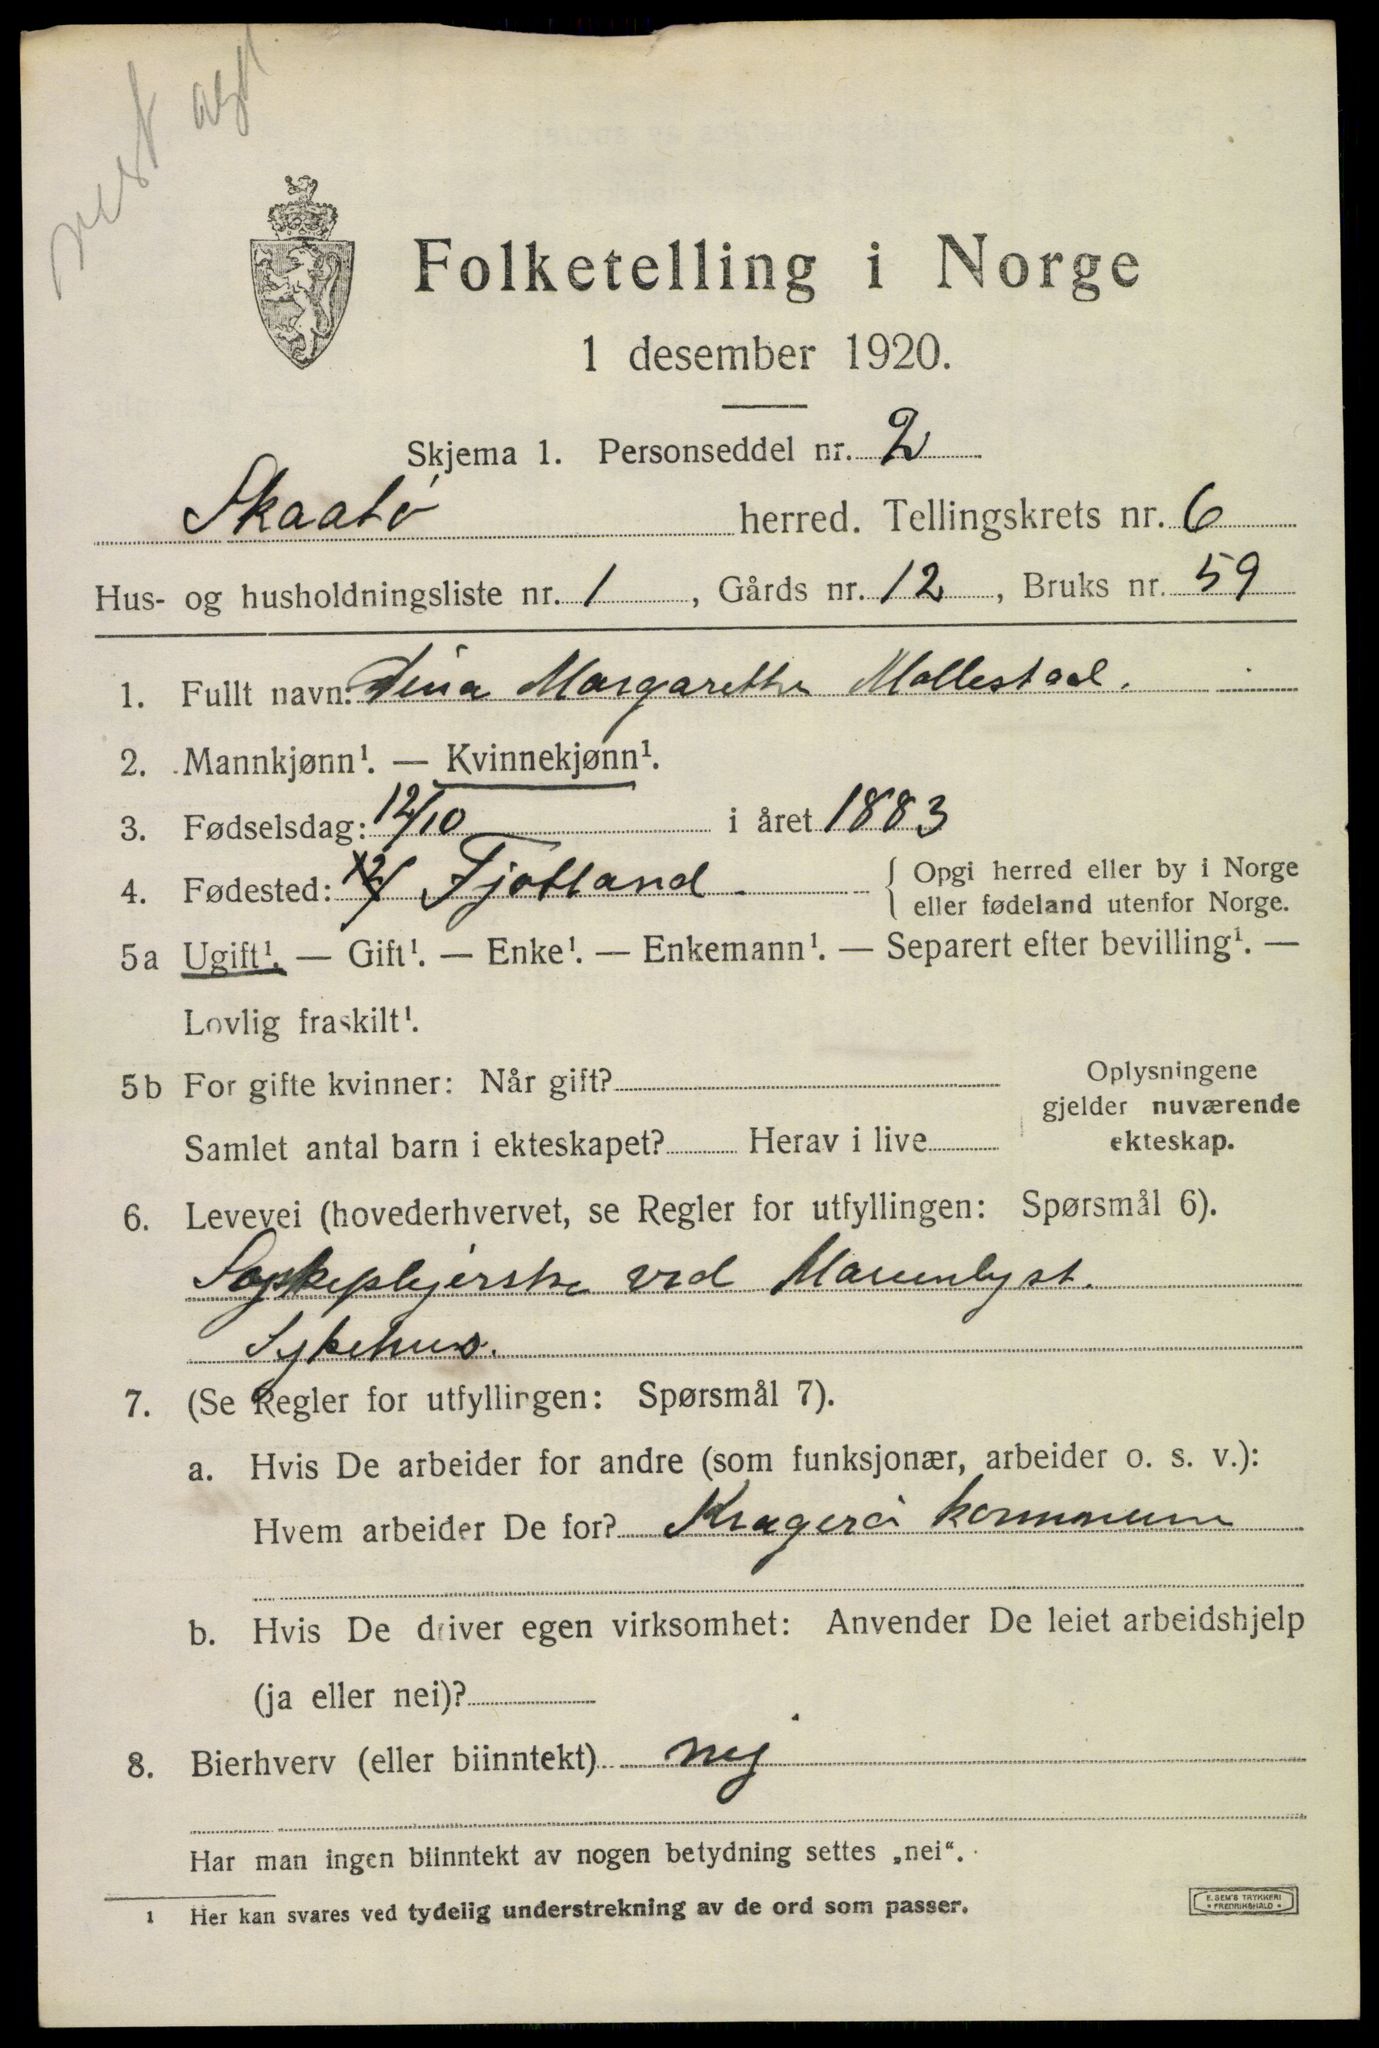 Folketelling i Norge
1 desember 1920.
Skjema 1. Personseddel nr. 2
Skaatö herred. Tellingskrets nr. 6
Hus- og husholdningsliste nr. 1, Gårds nr. 12, Bruks nr. 59
1. Fullt navn: Margarethe Mollestad.
2. Mannkjønn¹. — Kvinnekjønn¹.
3. Fødselsdag: 12/10 i året 1883
4. Fødested: Fjotland. { Opgi herred eller by i Norge
eller fødeland utenfor Norge.
5a Ugift¹. — Gift¹. — Enke¹. — Enkemann¹. — Separert efter bevilling¹. —
Lovlig fraskilt¹.
5b For gifte kvinner: Når gift?
Samlet antal barn i ekteskapet? Herav i live
Oplysningene
gjelder nuværende
ekteskap.
6. Levevei (hovederhvervet, se Regler for utfyllingen: Spørsmål 6).
ved Marienlyst.
Sykehus.
7. (Se Regler for utfyllingen: Spørsmål 7).
a. Hvis De arbeider for andre (som funksjonær, arbeider o. s. v.):
Hvem arbeider De for? Kragerö kommune
b. Hvis De driver egen virksomhet: Anvender De leiet arbeidshjelp
(ja eller nei)?
8. Bierhverv (eller biinntekt) nej
Har man ingen biinntekt av nogen betydning settes „nei“.
1 Her kan svares ved tydelig understrekning av de ord som passer.
E. SEM'S TRYKKERI
• FREDRIKSHALD •